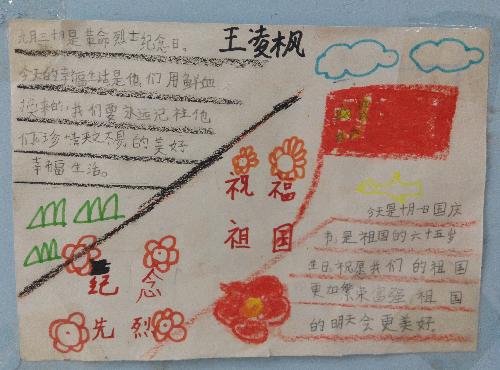 王凌枫
九月三十日是革命烈士纪念日。
今天的幸福生活是他们用鲜血
换来的,我们要永远记住他
们,珍惜来之不易的美好
幸福生活。
祝福
祖国
纪念
先烈
今天是十月一日国庆
节,是祖国的六十五岁
生日,祝愿我们的祖国
更加繁荣富强,祖国
的明天会更美好。